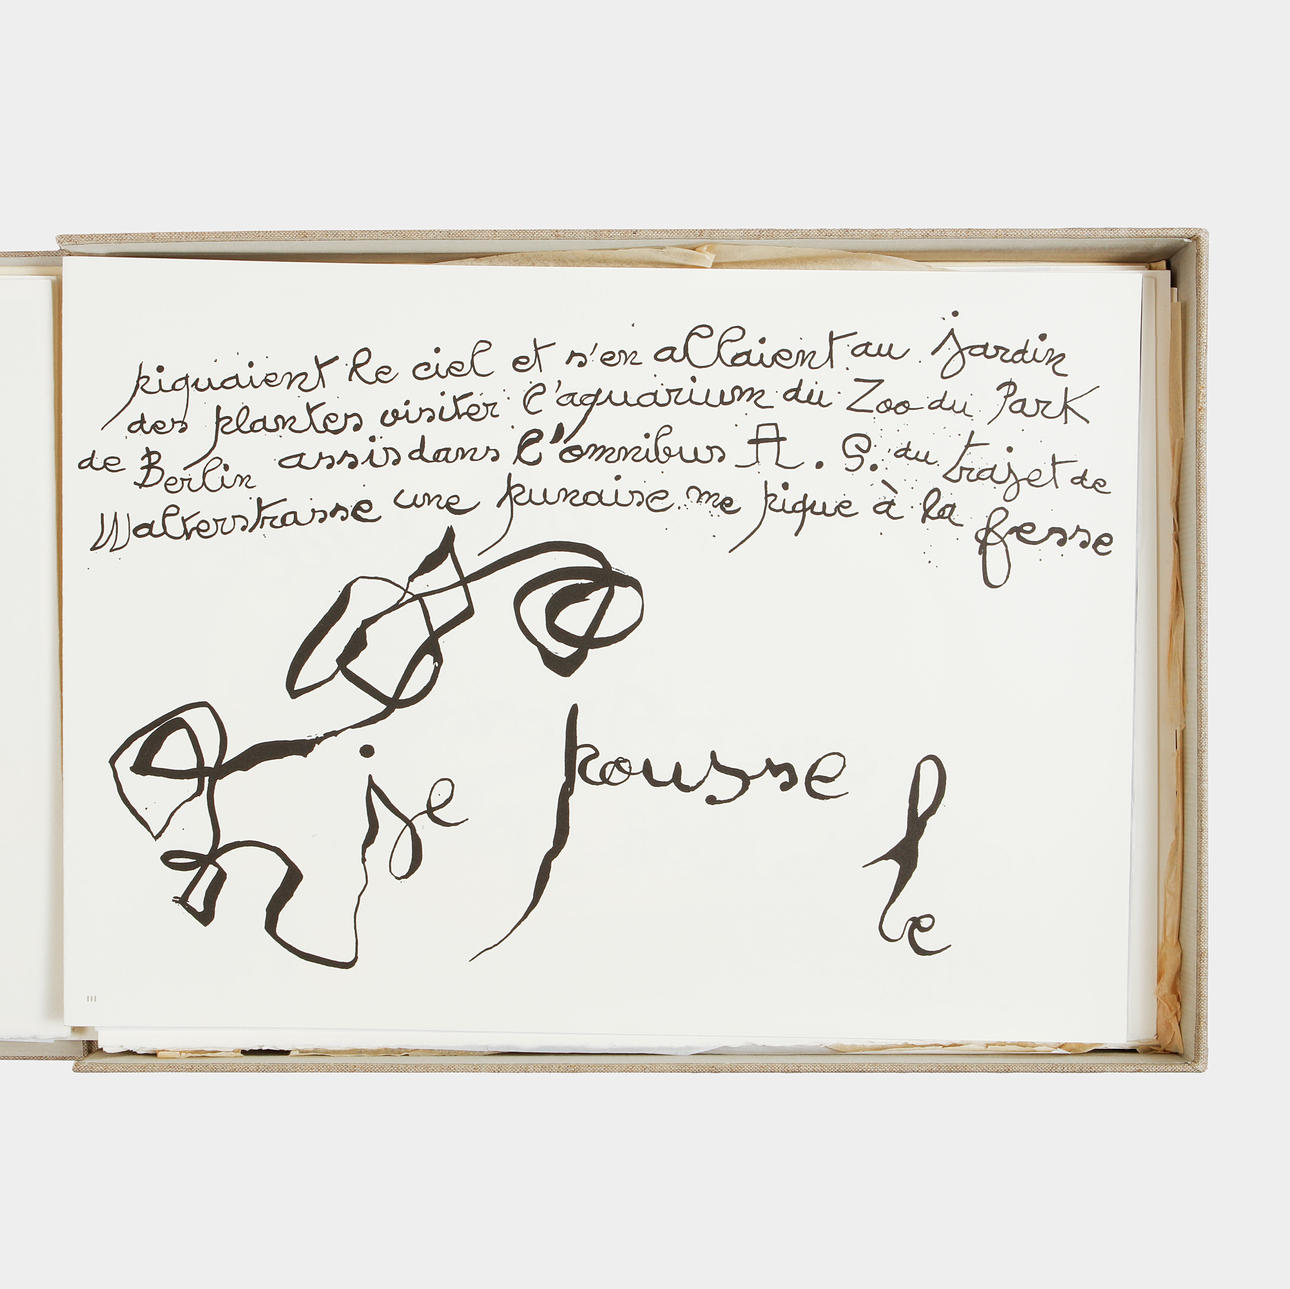 piquaient le ciel et s'en allaient au jardin
des plantes visiter l'aquarium du Zoo du Park
de Berlin assis dans l'omnibus A. S. du trajet de
Walterstrasse une punaise me pique à la fesse
je pousse le
III